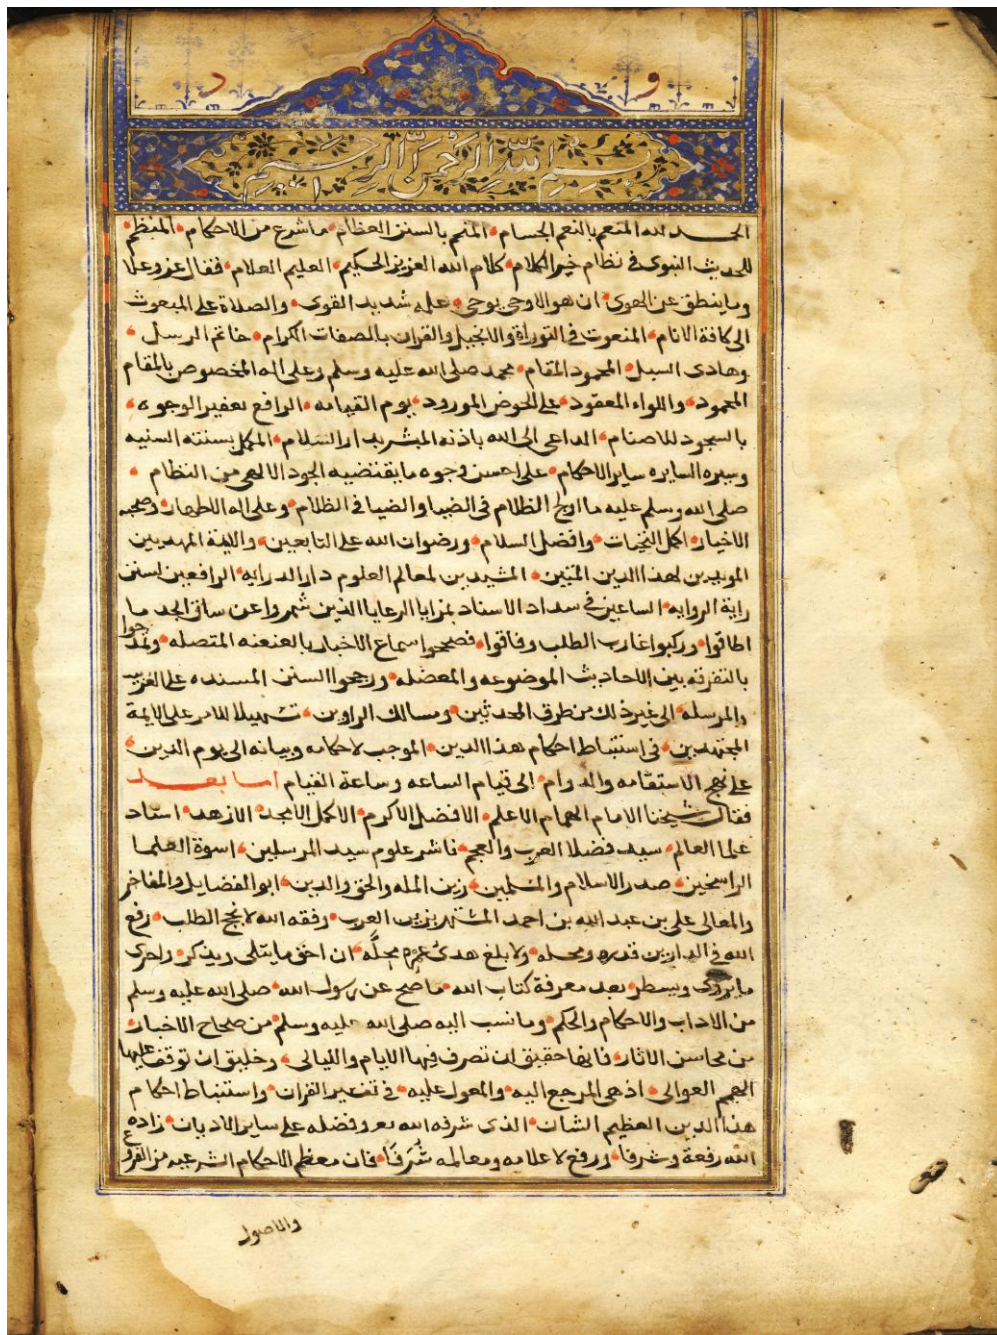 بسم الله الرحمن الرحيم
الحمد لله المنعم بالنعم الجسام المتمم بالسنن العظام ما شرع من الاحكام المنظم
للحديث النبوى فى نظام خير الكلام كلام الله العزيز الحكيم العليم العلام فقال عز وعلا
وما ينطق عن الهوى ان هو الا وحى يوحى علمه شديد القوى والصلاة على المبعوث
الى كافة الانام المنعوت فى التوراة والانجيل والقران بالصفات الكرام خاتم الرسل
وهادى السبل المحمود المقام محمد صلى الله عليه وسلم وعلى اله المخصوص بالمقام
المحمود واللواء المعقود على الحوض المورود يوم القيامه الرافع بعفير الوجوه
بالسجود للاصنام الداعى الى الله باذنه المبشر بدار السلام المكمل بسنته السنيه
وسيره السايره ساير الاحكام على احسن وجوه ما يقتضيه الجود الالهى من النظام
صلى الله وسلم عليه ما اولج الظلام فى الضيا والضيا فى الظلام وعلى اله الاطهار وصحبه
الاخيار اكمل التحيات وافضل السلام ورضوان الله على التابعين والايمة المهديين
المويدين لهذا الدين المتين المشيدين لمعالم العلوم دار الدرايه الرافعين لسنن
راية الروايه الساعين فى سداد الاسناد بمزايا الرعايا الذين شمروا عن ساق الجد ما
اطاقوا وركبوا غارب الطلب وفاقوا فصححوا اسماع الاخبار بالعنعنه المتصله
بالتفرقه بين الاحاديث الموضوعه والمعضله ورجحوا السنن المسنده على الغريب
والمرسله الى غير ذلك من طرق المحدثين ومسالك الراوين تسهيلا للامر على الايمة
المجتهدين فى استنباط احكام هذا الدين الموجب لاحكامه وبيانه الى يوم الدين
على نهج الاستقامه والدوام الى قيام الساعه وساعة القيام اما بعد
فقال شيخنا الامام الهمام الاعلم الافضل الاكرم الاكمل الامجد الازهد استاد
علما العالم سيد فضلا العرب والعجم ناشر علوم سيد المرسلين اسوة العلما
الراسخين صدر الاسلام والمسلمين زين المله والحق والدين ابو الفضايل والمفاخر
والمعالى على بن عبد الله بن احمد المشتهر بزين العرب وفقه الله لانجح الطلب رفع
الله فى الدارين قدره ومحله ولا بلغ هدى عمره محله ان احق ما يتلى ويذكر واحرى
ما يروى ويسطر بعد معرفة كتاب الله ما صح عن رسول الله صلى الله عليه وسلم
من الاداب والاحكام والحكم وما نسب اليه صلى الله عليه وسلم من صحاح الاخبار
من محاسن الاثار فانها حقيق ان تصرف فيها الايام والليالى وخليق ان توقف عليها
الهمم العوالى اذ هى المرجع اليه والمعول عليه فى تفسير القران واستنباط احكام
هذا الدين العظيم الشان الذى شرفه الله وفضله على ساير الاديان زاده
الله رفعة وشرفا ورفع لاعلامه ومعالمه شرفا فان معظم الاحكام الشرعيه من الفروع
والاصول